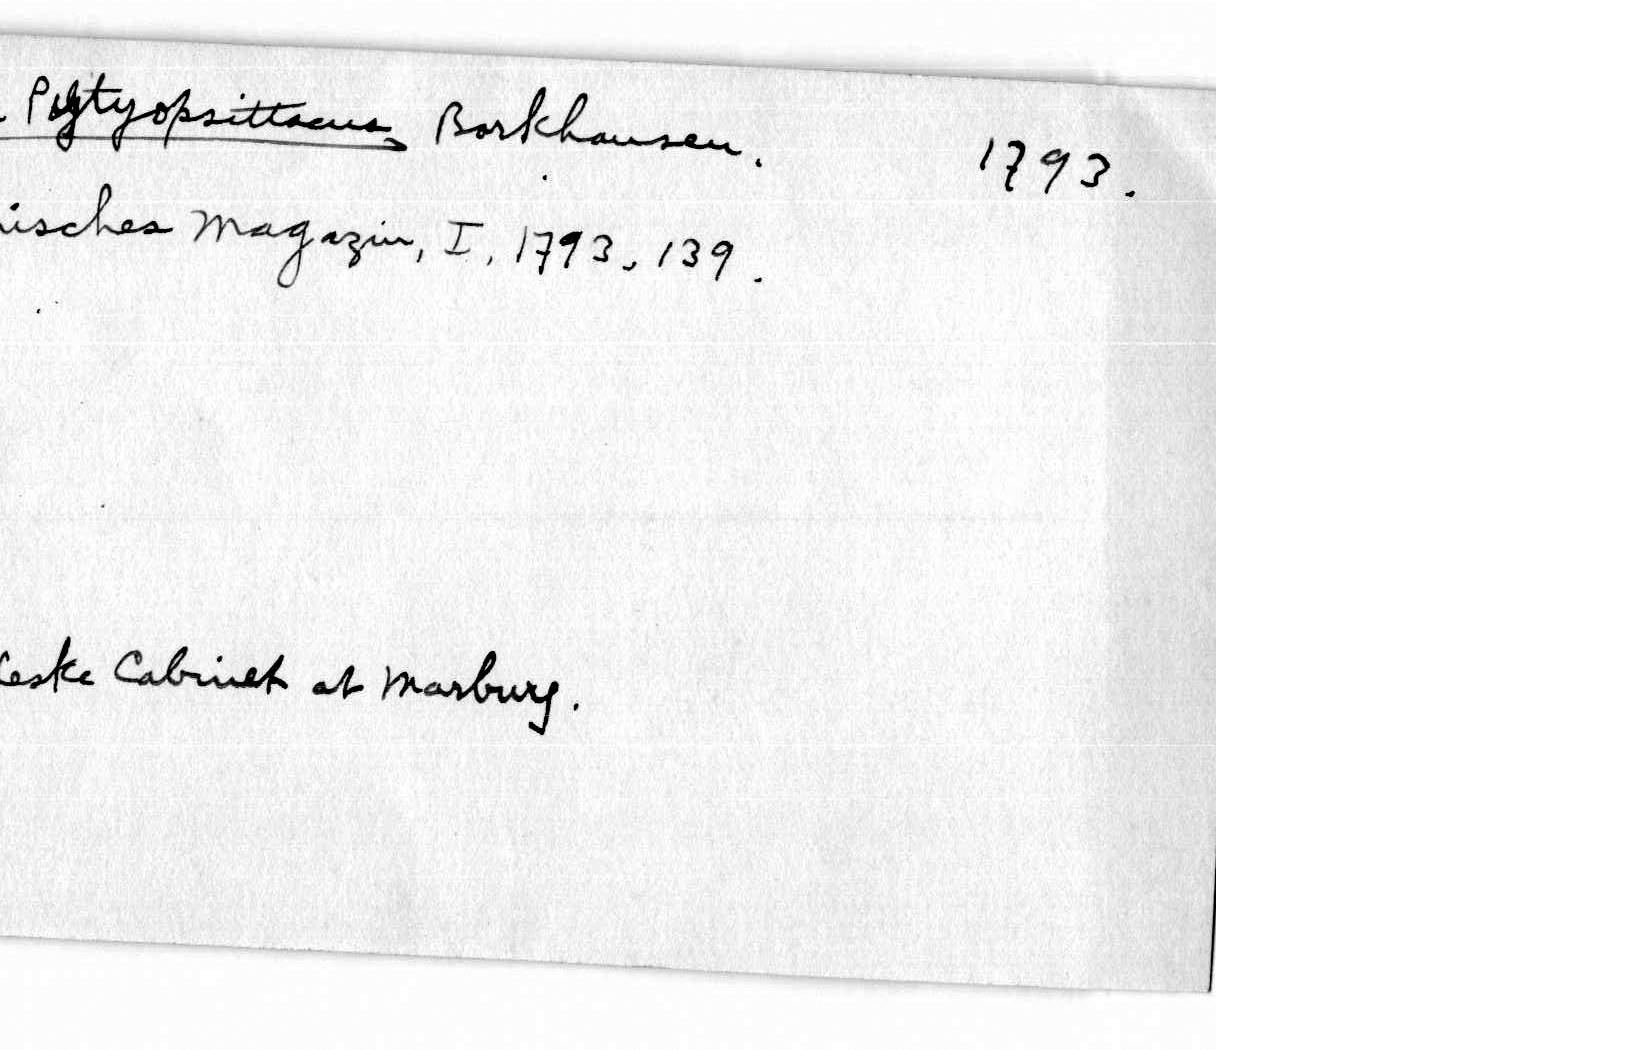 Pytyopsittacus Borkhausen. 1793.
isches Magazin, I, 1793, 139.
Leske Cabinet at Marburg.